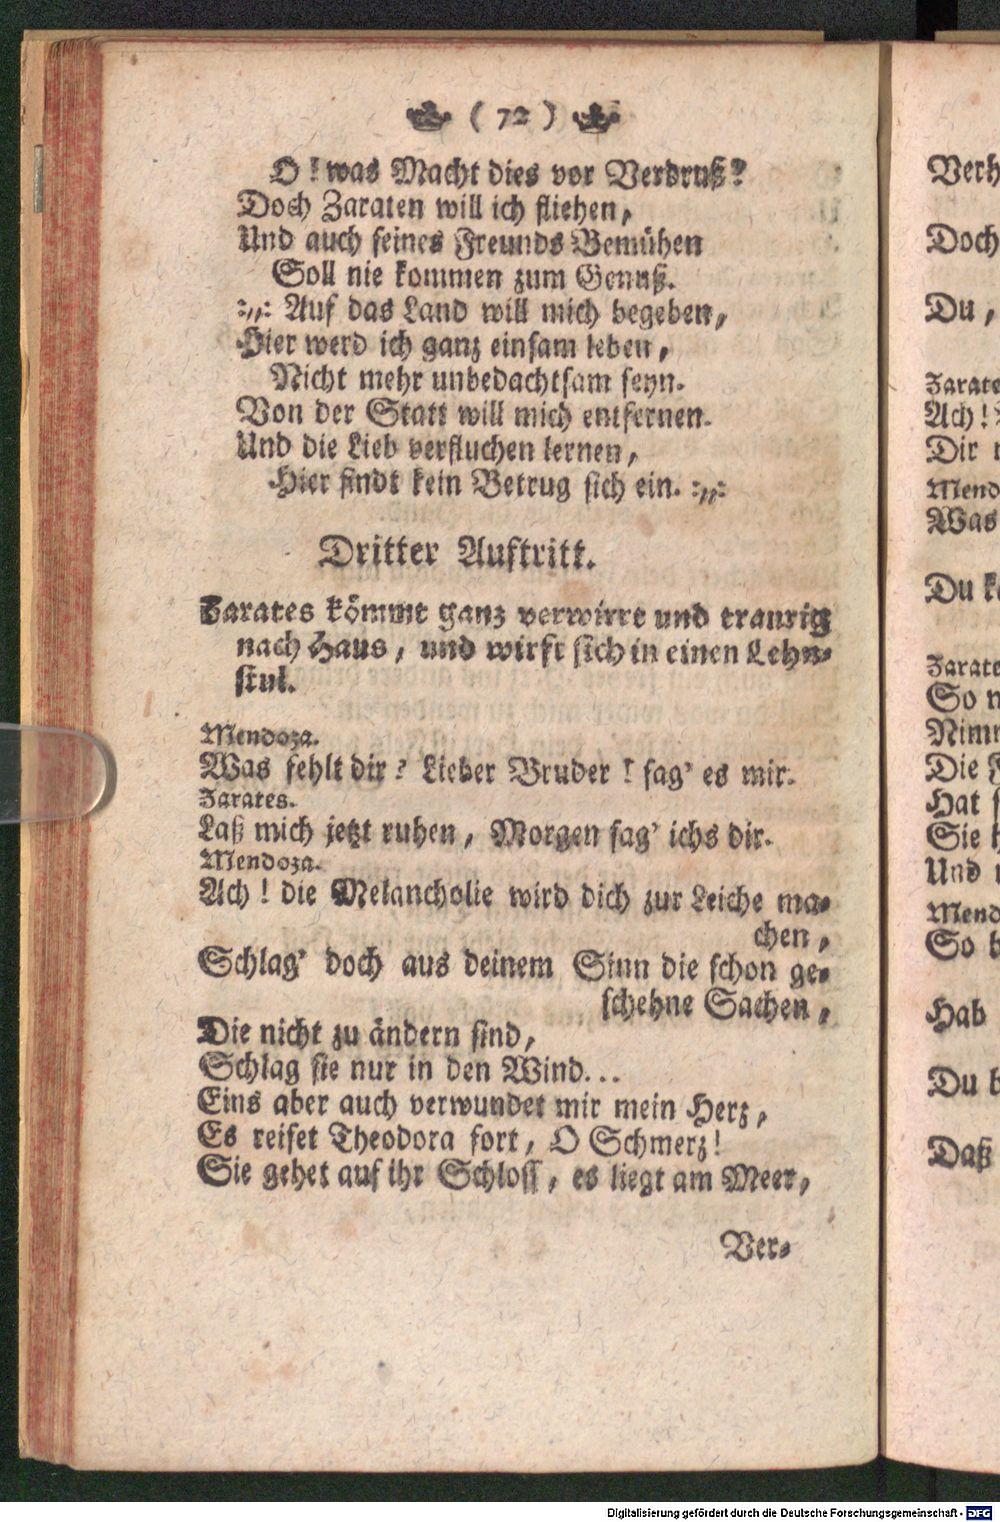 ( 72 )
O! was Macht dies vor Verdruß?
Doch Zaraten will ich fliehen,
Und auch seines Freunds Bemühen
Soll nie kommen zum Genuß.
:,,: Auf das Land will mich begeben,
Hier werd ich ganz einsam leben,
Nicht mehr unbedachtsam seyn.
Von der Statt will mich entfernen.
Und die Lieb verfluchen lernen,
Hier findt kein Betrug sich ein. :,,:
Dritter Auftritt.
Zarates kömmt ganz verwirrt und traurig
nach Haus, und wirft sich in einen Lehn-
stul.
Mendoza.
Was fehlt dir? Lieber Bruder! sag' es mir.
Zarates.
Laß mich jetzt ruhen, Morgen sag' ichs dir.
Mendoza.
Ach! die Melancholie wird dich zur Leiche ma-
chen,
Schlag' doch aus deinem Sinn die schon ge-
schehne Sachen,
Die nicht zu ändern sind,
Schlag sie nur in den Wind...
Eins aber auch verwundet mir mein Herz,
Es reiset Theodora fort, O Schmerz!
Sie gehet auf ihr Schloss, es liegt am Meer,
Ver-
Verh
Doch
Du,
Zarate
Ach!
Dir
Mend
Was
Du k
Zarate
So n
Nimm
Die
Hat
Sie h
Und
Mend
So b
Hab
Du b
Daß
Digitalisierung gefördert durch die Deutsche Forschungsgemeinschaft - DFG